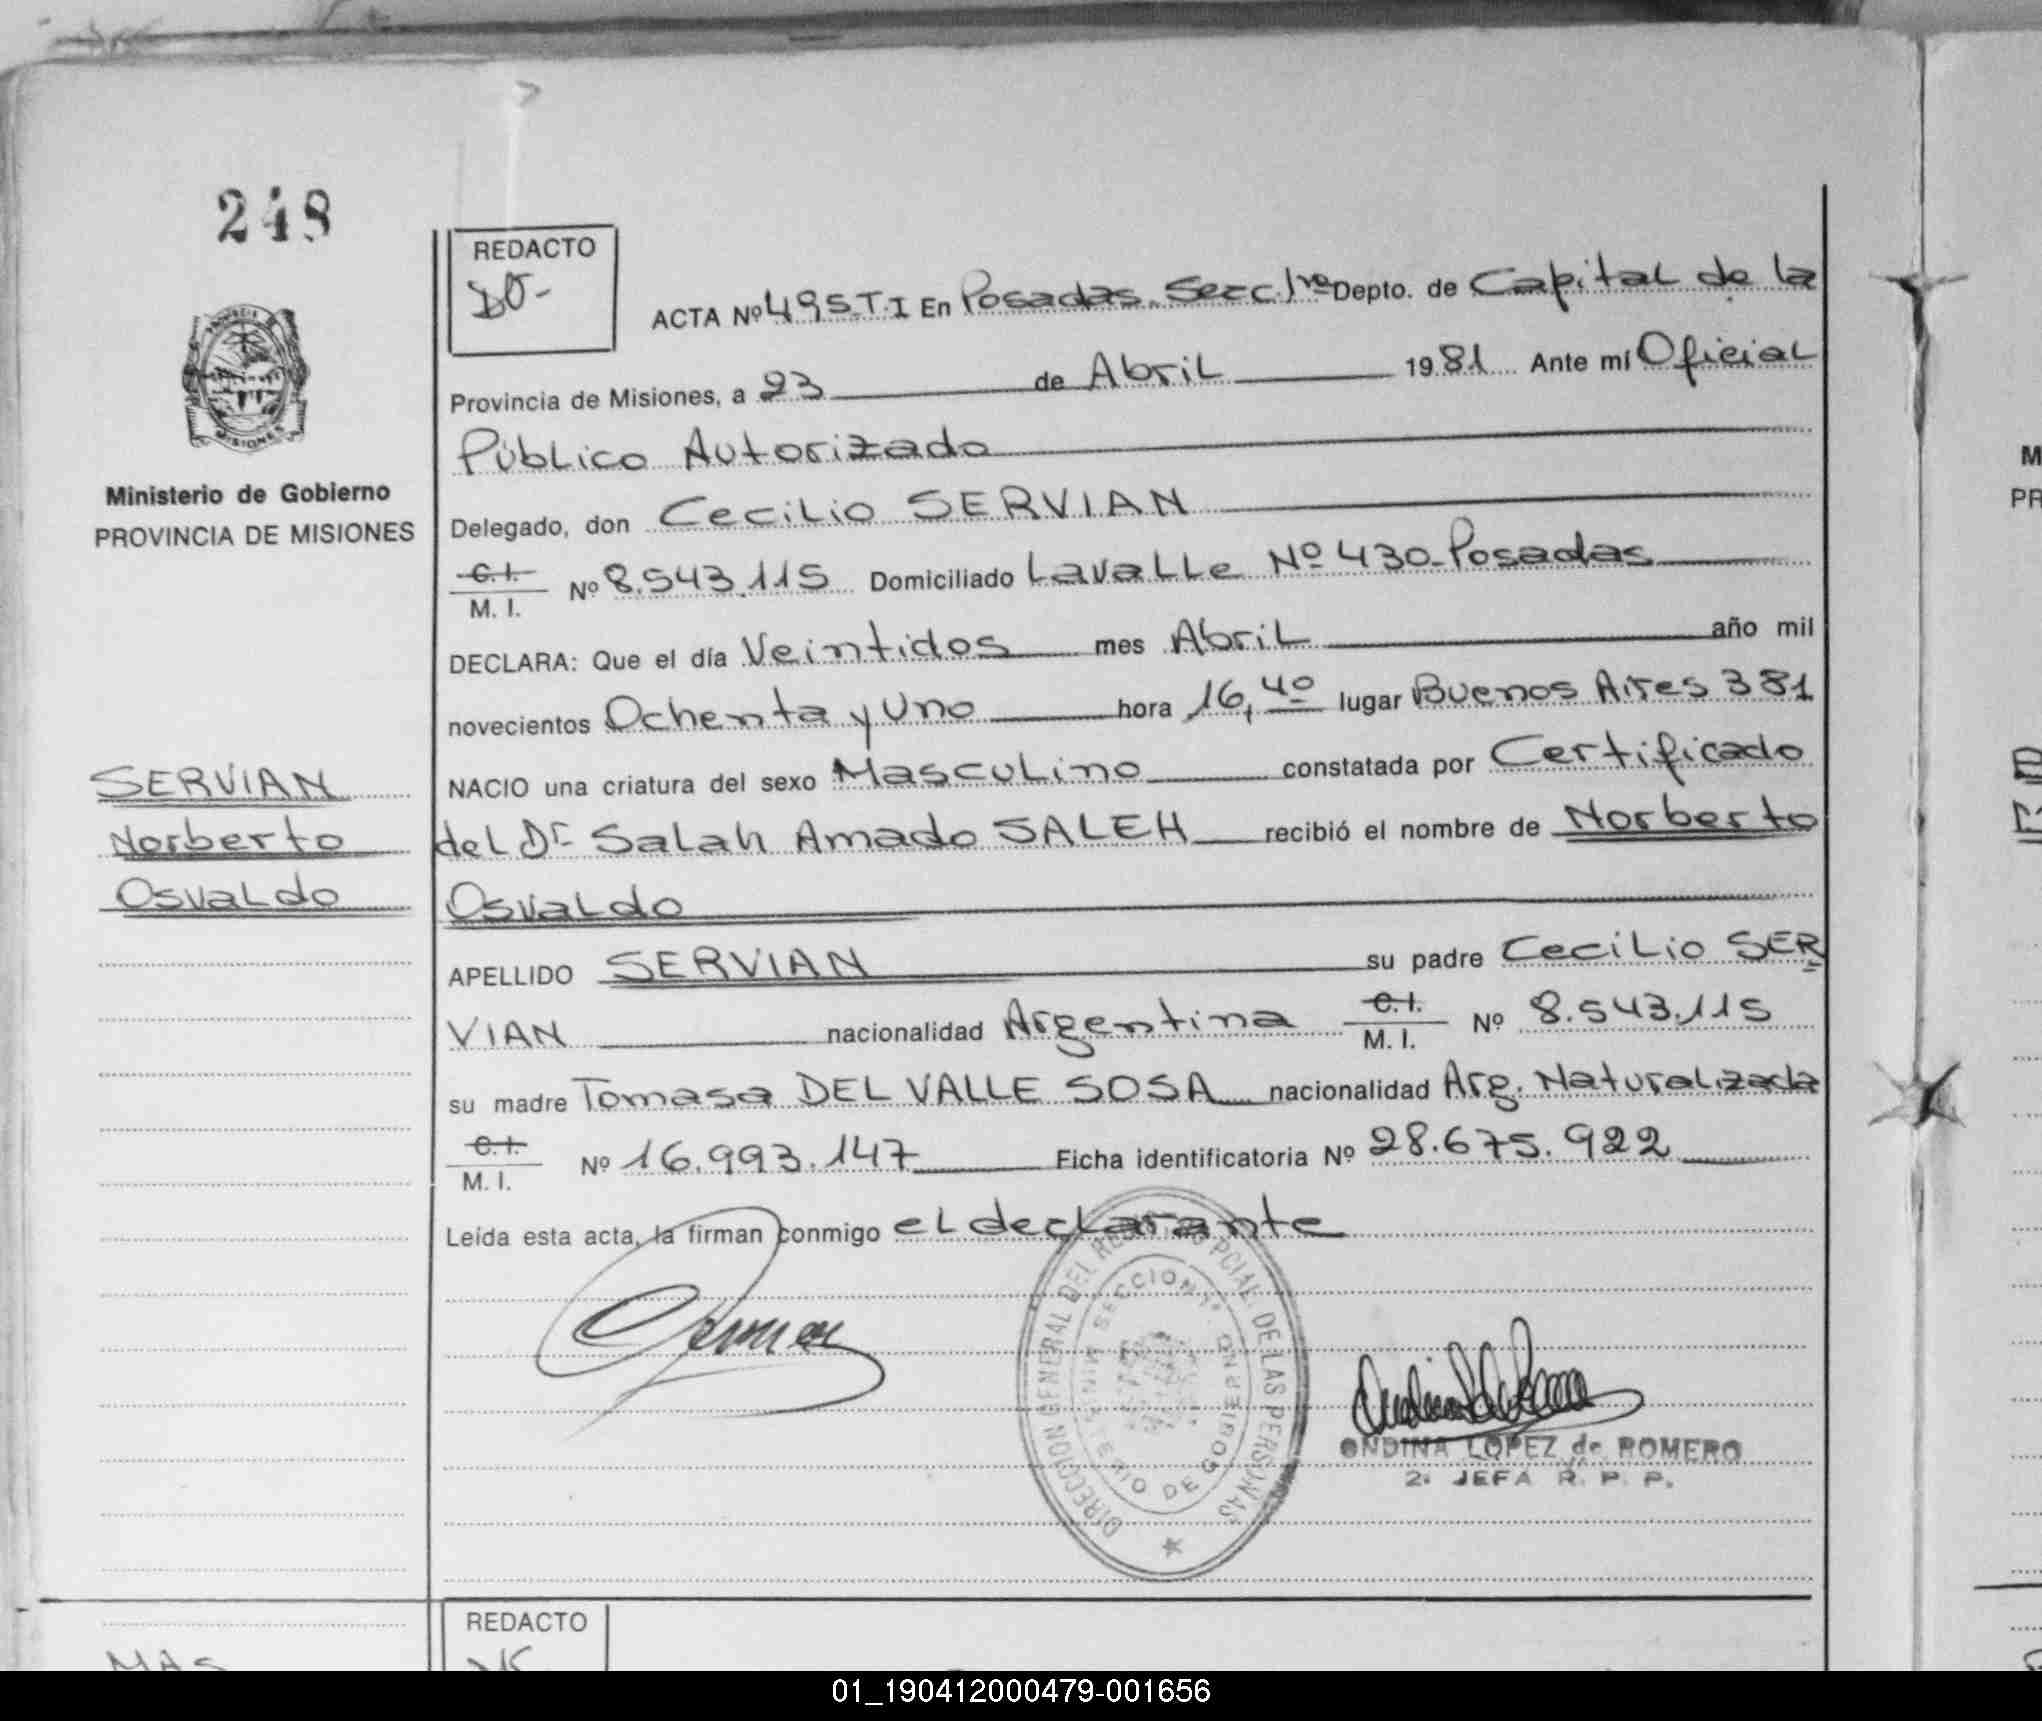 248
REDACTO
DO-
ACTA Nº 495-T-I En Posadas. Secc. 1ra Depto. de Capital de la
Provincia de Misiones, a 23 de Abril 1981 Ante mí Oficial
Público Autorizado
Ministerio de Gobierno
PROVINCIA DE MISIONES
Delegado, don Cecilio SERVIAN
C.I.
M. I. Nº 8.543.115 Domiciliado Lavalle Nº 430-Posadas
DECLARA: Que el día Veintidos mes Abril año mil
novecientos Ochenta y Uno hora 16,40 lugar Buenos Aires 381
SERVIAN
Norberto
Osvaldo
NACIO una criatura del sexo Masculino constatada por Certificado
del Dr Salah Amado SALEH recibió el nombre de Norberto
Osvaldo
APELLIDO SERVIAN su padre Cecilio SER
VIAN nacionalidad Argentina C.I. M. I. Nº 8.543.115
su madre Tomasa DEL VALLE SOSA nacionalidad Arg. Naturalizada
C.I.
M. I. Nº 16.993.147 Ficha identificatoria Nº 28.675.922
Leída esta acta, la firman conmigo el declarante
DIRECCION GENERAL DEL REGISTRO PCIAL. DE LAS PERSONAS
MINISTERIO DE GOBIERNO
SECCION 1ª
ONDINA LOPEZ de ROMERO
2ª JEFA R. P. P.
REDACTO
MAS
M
PR
01_190412000479-001656